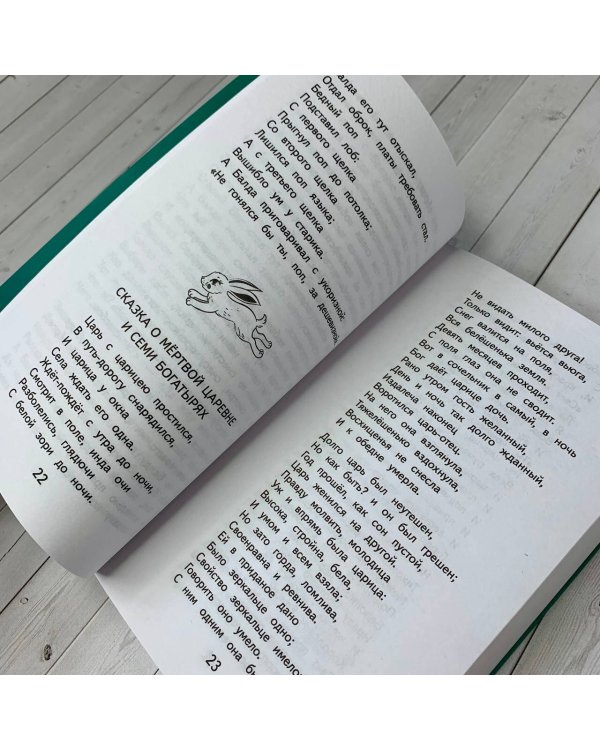 алда его тут отыскал,
Отдал оброк, платы требовать стал.
Бедный поп
Подставил лоб:
С первого щелка
Прыгнул поп до потолка;
Со второго щелка
Лишился поп языка;
А с третьего щелка
Вышибло ум у старика.
А Балда приговаривал с укоризной:
«Не гонялся бы ты, поп, за дешевизной
СКАЗКА О МЁРТВОЙ ЦАРЕВНЕ
И СЕМИ БОГАТЫРЯХ
Царь с царицею простился,
В путь-дорогу снарядился,
И царица у окна
Села ждать его одна.
Ждёт-пождёт с утра до ночи,
Смотрит в поле, инда очи
Разболелись, глядючи
С белой зори до ночи.
22
Не видать милого друга!
Только видит: вьётся вьюга,
Снег валится на поля,
Вся белёшенька земля.
Девять месяцев проходит,
С поля глаз она не сводит.
Вот в сочельник в самый, в ночь
Бог даёт царице дочь.
Рано утром гость желанный,
День и ночь так долго жданный,
Издалеча наконец
Воротился царь-отец.
На него она взглянула,
Тяжелёшенько вздохнула,
Восхищенья не снесла
И к обедне умерла.
Долго царь был неутешен,
Но как быть? и он был грешен;
Год прошёл, как сон пустой,
Царь женился на другой.
Правду молвить, молодица
Уж и впрямь была царица:
Высока, стройна, бела,
И умом и всем взяла;
Но зато горда, ломлива,
Своенравна и ревнива.
Ей в приданое дано
Было зеркальце одно;
Свойство зеркальце имело:
Говорить оно умело.
С ним одним она бы
23